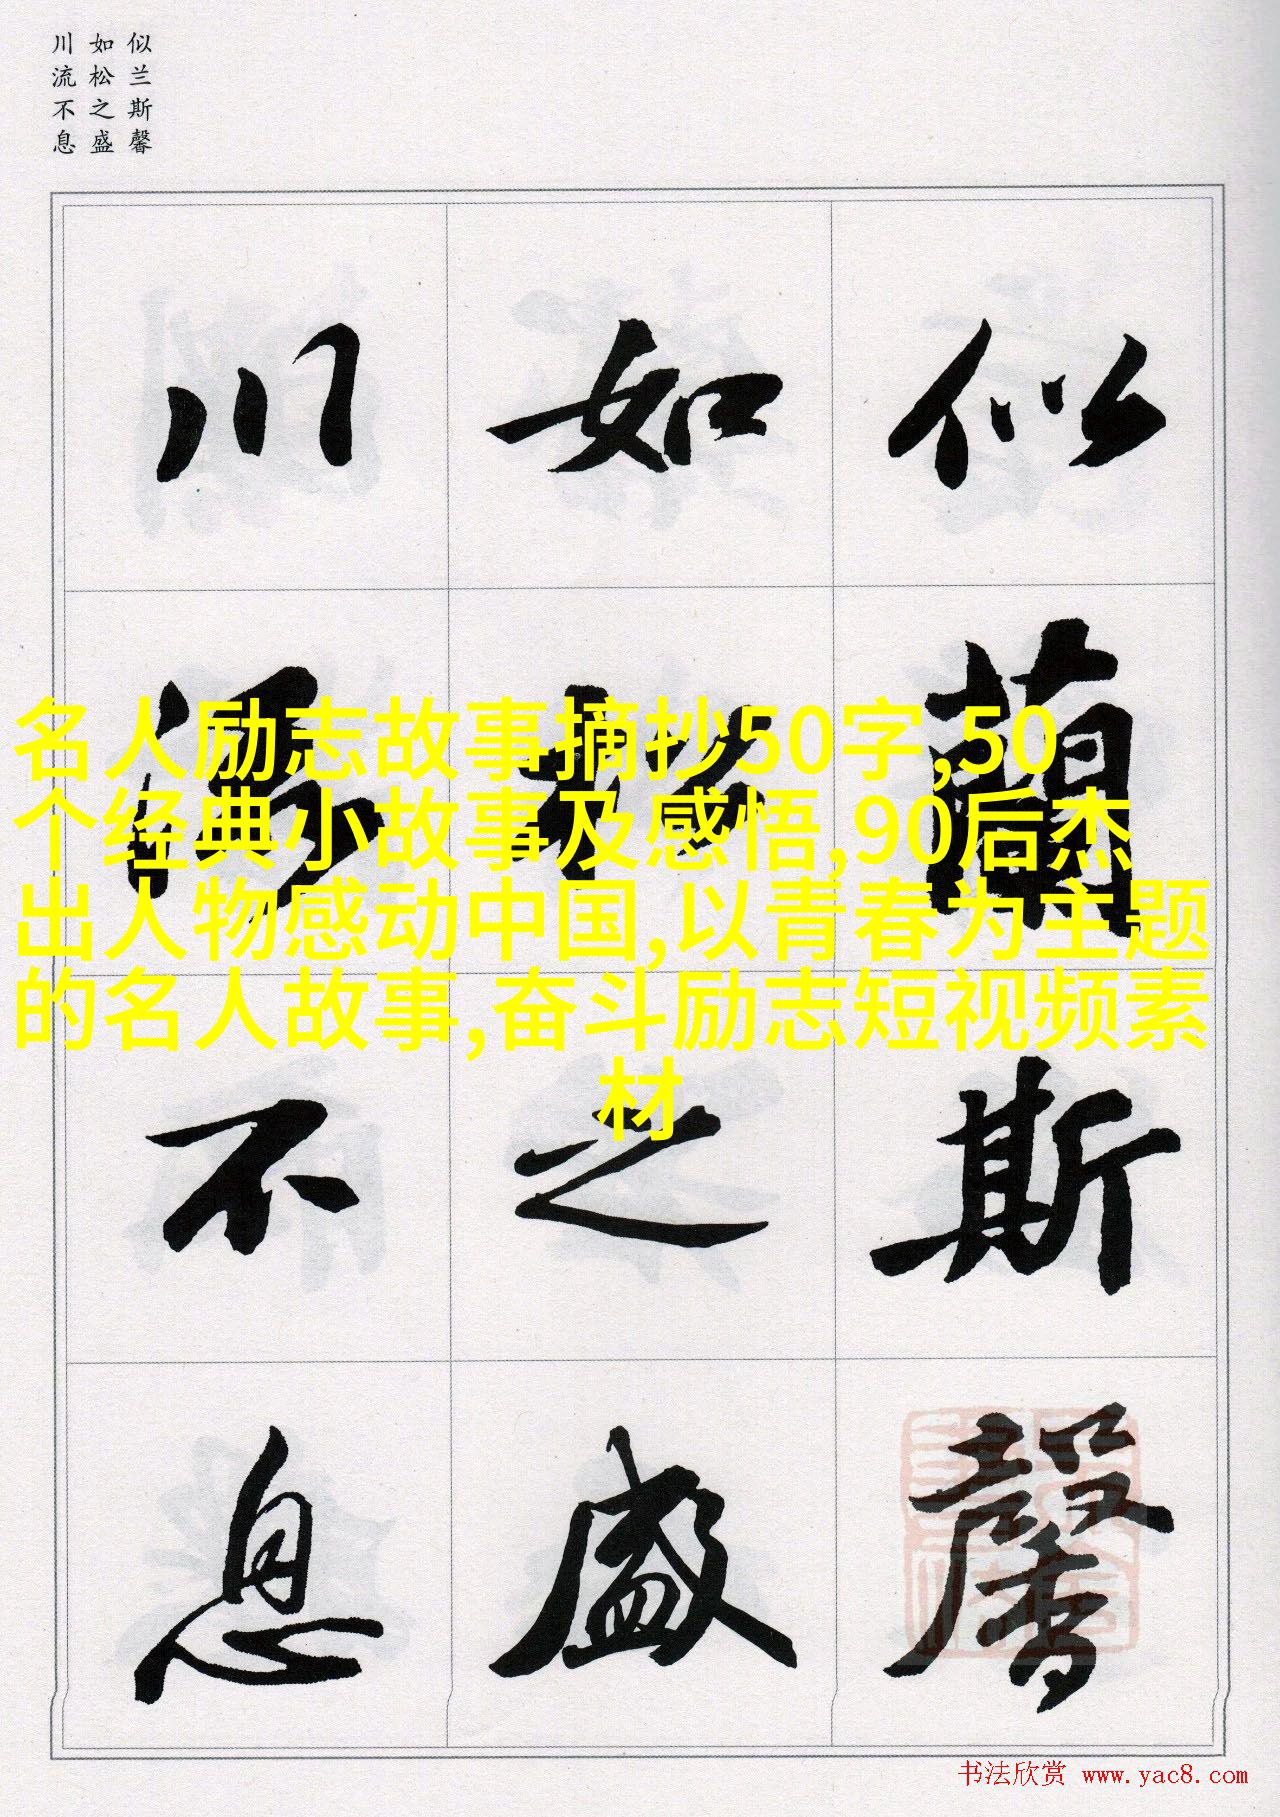 似兰斯馨
如松之盛
川流不息
似蘭斯馨
如松之盛
川流不息
名人励志故事摘抄50字,50
个经典小故事及感悟,90后杰
出人物感动中国,以青春为主题
的名人故事,奋斗励志短视频素
材
书法欣赏 www.yac8.com